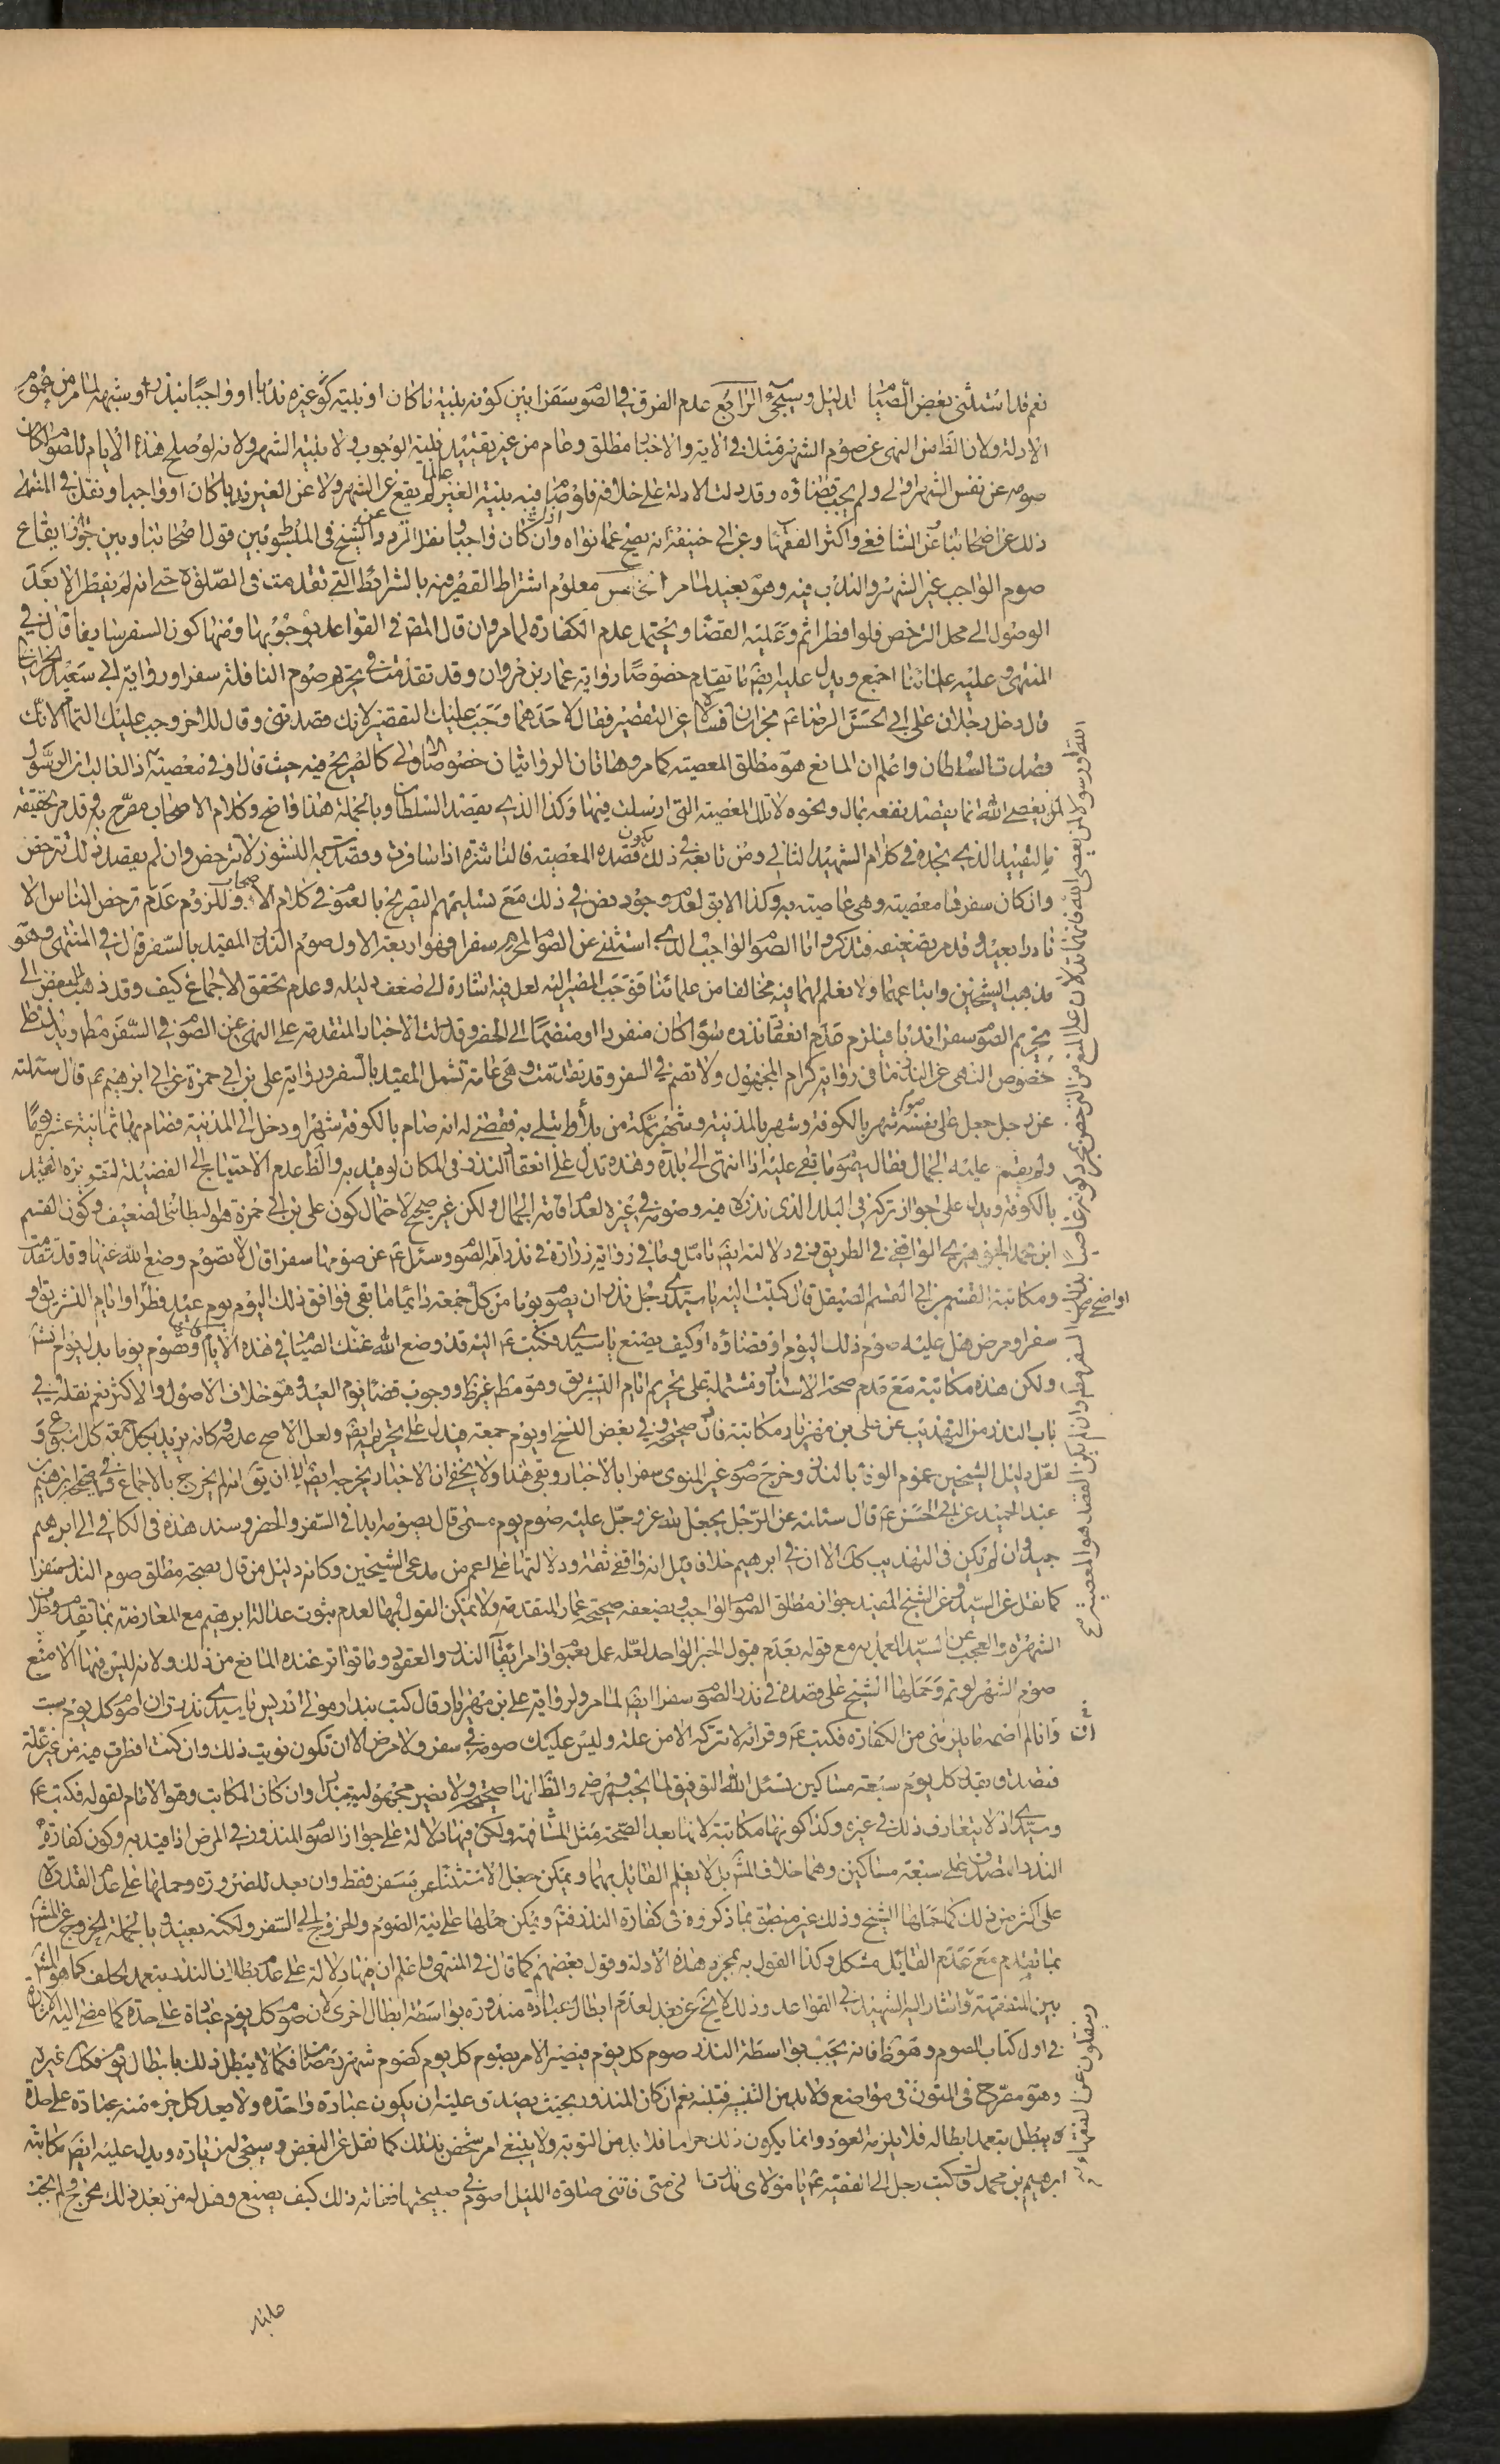 نعم قد استثنى بعض الصيام الدليل وسيجئ الرابع عدم الفرق في الصوم سفرا بين كونه بنية كان او بنية غيره ندبا او واجبا بنذر او شبهه لما مر من عموم
الادلة ولان الظ من النهى عن صوم الشهر مثلا في الاية والاخبار مطلق وعام من غير تقييد بنية الوجوب ولا بنية الشهر ولانه لو صلح هذه الايام للصوم لكان
صومه عن نفس الشهر اولى ولم يجب قضاؤه وقد دلت الادلة على خلافه فلو صام فيه بنية الغير عالما لم يقع عن الشهر ولا عن الغير ندبا كان او واجبا ونقل في المنتهى
ذلك عن اصحابنا وعن الشافعي واكثر الفقهاء وعن ابي حنيفة انه يصح عما نواه اذا كان واجبا ونقل التردد عن الشيخ في المبسوط بين قول اصحابنا وبين جواز ايقاع
صوم الواجب غير الشهر والندب فيه وهو بعيد لما مر الخامس معلوم اشتراط القصر فيه بالشرائط التي تقدمت في الصلوة حتى انه لم يفطر الا بعد
الوصول الى محل الترخص فلو افطر اثم وعليه القضا ويحتمل عدم الكفارة لما مر وان قال المصر في القواعد بوجوبها ومنها كون السفر سايغا قال في
المنتهى وعليه علمائنا اجمع ويدل عليه ايضا ما تقدم خصوصا رواية عمار بن مروان وقد تقدمت في تحريم صوم النافلة سفرا ورواية ابي سعيد الخراساني
قال دخل رجلان على ابي الحسن الرضا ع بخراسان فسالاه عن التقصير فقال لاحدهما وجب عليك التقصير لانك قصدتني وقال للاخر وجب عليك التمام لانك
قصدت السلطان واعلم ان المانع هو مطلق المعصية كما مر وهاتان الروايتان خصوصا الاولى كالصريح فيه حيث قال او في معصية اذ الغالب ان الرسول
لمن يعصى الله انما يقصد نفعه بمال ونحوه لا تلك المعصية التي ارسلت فيها وكذا الذي يقصد السلطان وبالجملة هذا واضح وكلام الاصحاب مصرح به وقد مر تحقيقه
فالتقييد الذي نجده في كلام الشهيد الثاني ومن تابعه في ذلك بكون قصده المعصية فالناشزة اذا سافرت وقصدت به النشوز لا تترخص وان لم يقصد ذلك تترخص
وان كان سفرها معصية وهي عاصية به وكذا الابق لعدم وجود نص في ذلك مع تسليمهم التصريح بالعموم في كلام الاصحاب وللزوم عدم ترخص الناس الا
نادرا بعيد وقد مر تضعيفه فتذكر واما الصوم الواجب الذي استثنى عن الصوم المحرم سفرا فهو اربعة الاول صوم النذر المقيد بالسفر قال في المنتهى وهو
مذهب الشيخين واتباعهما ولا نعلم لهما فيه مخالفا من علمائنا فوجب المصير اليه لعل فيه اشارة الى ضعف دليله وعدم تحقق الاجماع كيف وقد ذهب البعض الى
تحريم الصوم سفرا ندبا فيلزم عدم انعقاد نذره سواء كان منفردا او منضما الى الحضر وقد دلت الاخبار المتقدمة على النهى عن الصوم في السفر مطلقا ويدل
خصوص النهى عن النذر ما في رواية كرام المجهول ولا تصم في السفر وقد تقدمت وهي عامة تشمل المقيد بالسفر ورواية علي بن ابي حمزة عن ابي ابرهيم ع قال سئلته
عن رجل جعل على نفسه صوم شهر بالكوفة وشهر بالمدينة وشهر بمكة من بلاء ابتلى به فقضى له انه صام بالكوفة شهرا ودخل الى المدينة فصام بها ثمانية عشر يوما
ولم يقم عليه الجمال فقال يصوم ما بقى عليه اذا انتهى الى بلده وهذه تدل على انعقاد النذر في المكان لو قيد به والظ عدم الاحتياج الى الفضيلة لتقويزه القيد
بالكوفة ويدل على جواز تركه في البلد الذي نذره فيه وصومه في غيره لعدم اقامة الجمال ولكن غير صحيح لاحتمال كون علي بن ابي حمزة هو البطائني الضعيف وكون القسم
ابن محمد الجوهري الواقفي في الطريق وفي دلالته ايضا تامل وما في رواية زرارة في نذر امه الصوم وسئل ع عن صومها سفرا قال لا تصوم وضع الله عنها وقد تقدمت
ومكاتبة القسم بن ابي القسم الصيقل قال كتبت اليه يا سيدي رجل نذر ان يصوم يوما من كل جمعة دائما ما بقى فوافق ذلك اليوم يوم عيد فطر او ايام التشريق او
سفر او مرض هل عليه صوم ذلك اليوم او قضاؤه او كيف يصنع يا سيدي فكتب ع اليه قد وضع الله عنك الصيام في هذه الايام وتصوم يوما بدل يوم انش
ولكن هذه مكاتبة مع عدم صحة الاسناد ومشتملة على تحريم ايام التشريق وهو مطلقا غير ظ ووجوب قضاء يوم العيد وهو خلاف الاصول والاكثر نعم نقله في
باب النذر من التهذيب عن علي بن مهزيار مكاتبة فانها صحيحة وفي بعض النسخ او يوم جمعة فيدل على تحريمه ايضا ولعل الاصح عدمه وكانه يريد بكل جمعة كل اسبوع و
لعل دليل الشيخين عموم الوفا بالنذر وخرج صوم غير المنوى سفرا بالاخبار وبقى هذا ولا يخفى ان الاخبار يخرجه ايضا الا ان يق انه لم يخرج بالاجماع ففي صحيحة ابرهيم بن
عبد الحميد عن ابي الحسن ع قال سئلته عن الرجل يجعل لله عز وجل عليه صوم يوم مسمى قال يصومه ابدا في السفر والحضر وسند هذه في الكافي الى ابرهيم
جيد وان لم تكن في التهذيب كك الا ان في ابرهيم خلاف قيل انه واقفي ثقة ودلالتها على اعم من مدعى الشيخين وكانه دليل من قال بصحة مطلق صوم النذر سفرا
كما نقل عن السيد وعن الشيخ المفيد جواز مطلق الصوم الواجب ويضعفه صحيحة عمار المتقدمة ولا يمكن القول بها لعدم ثبوت عدالة ابرهيم مع المعارضة بما تقدم وخلاف
الشهرة والعجب عن السيد العمل به مع قوله بعدم قبول الخبر الواحد لعله عمل بعموم اوامر ايقاع النذر والعقود وما تواتر عنده المانع من ذلك ولانه ليس فيها الا منع
صوم الشهر لو تم وحملها الشيخ على قصده في نذر الصوم سفرا ايضا لما مر ولرواية علي بن مهزيار قال كتب بندار مولى ادريس يا سيدي نذرت ان اصوم كل يوم سبت
فان انا لم اصمه ما يلزمني من الكفارة فكتب ع وقراته لا تتركه الا من علة وليس عليك صومه في سفر ولا مرض الا ان تكون نويت ذلك وان كنت افطرت فيه من غير علة
فتصدق بعدد كل يوم سبعة مساكين نسئل الله التوفيق لما يحب ويرضى والظ انها صحيحة ولا يضر مجهولية بندار وان كان المكاتب وهو الامام لقوله فكتب ع
وسيدي اذ لا يتعارف ذلك في غيره وكذا كونها مكاتبة لانها بعد الصحة مثل المشافهة ولكن فيها دلالة على جواز الصوم المنذور في المرض اذا قيد به وكون كفارة
النذر التصدق على سبعة مساكين وهما خلاف المش بل لا يعلم القايل بهما ويمكن جعل الاستثناء عن سفر فقط وان بعد للضرورة وحملها على عدم القدرة
على اكثر من ذلك كما حملها الشيخ وذلك غير منطبق بما ذكروه في كفارة النذر فتم ويمكن حملها على نية الصوم والخروج الى السفر ولكنه بعيد وبالجملة الخروج عن المش
بما تقدم مع عدم القايل مشكل وكذا القول به بمجرد هذه الادلة وقول بعضهم كما قال في المنتهى واعلم ان فيها دلالة على عدم بطلان النذر بتعمد الحلف كما هو المش
بين المتفقهة واشار اليه الشهيد في القواعد وذلك لا يخ عن بعد لعدم ابطال عبادة منذورة بواسطة ابطال اخرى لان صوم كل يوم عبادة على حدة كما مضى اليه الاشارة
في اول كتاب الصوم وهو ظ فانه يجب بواسطة النذر صوم كل يوم فيصير الامر بصوم كل يوم كصوم شهر رمضان فكما لا يبطل ذلك بابطال يوم فكك غيره
وهو مصرح في المتون في مواضع ولا بد من التنبيه فتنبه نعم ان كان المنذور بحيث يصدق عليه ان يكون عبادة واحدة ولا يعد كل جزء منه عبادة على حدة
يبطل بتعمد ابطاله فلا يلزمه العود وانما يكون ذلك حراما فلا بد من التوبة ولا ينبغي امر شخص بذلك كما نقل عن البعض وسيجئ له زيادة ويدل عليه ايضا مكاتبة
ابرهيم بن محمد قال كتب رجل الى الفقيه ع يا مولاي نذرت اني متى فاتتني صلوة الليل اصوم في صبيحتها ففاته ذلك كيف يصنع وهل له من بعد ذلك مخرج ولم يجب